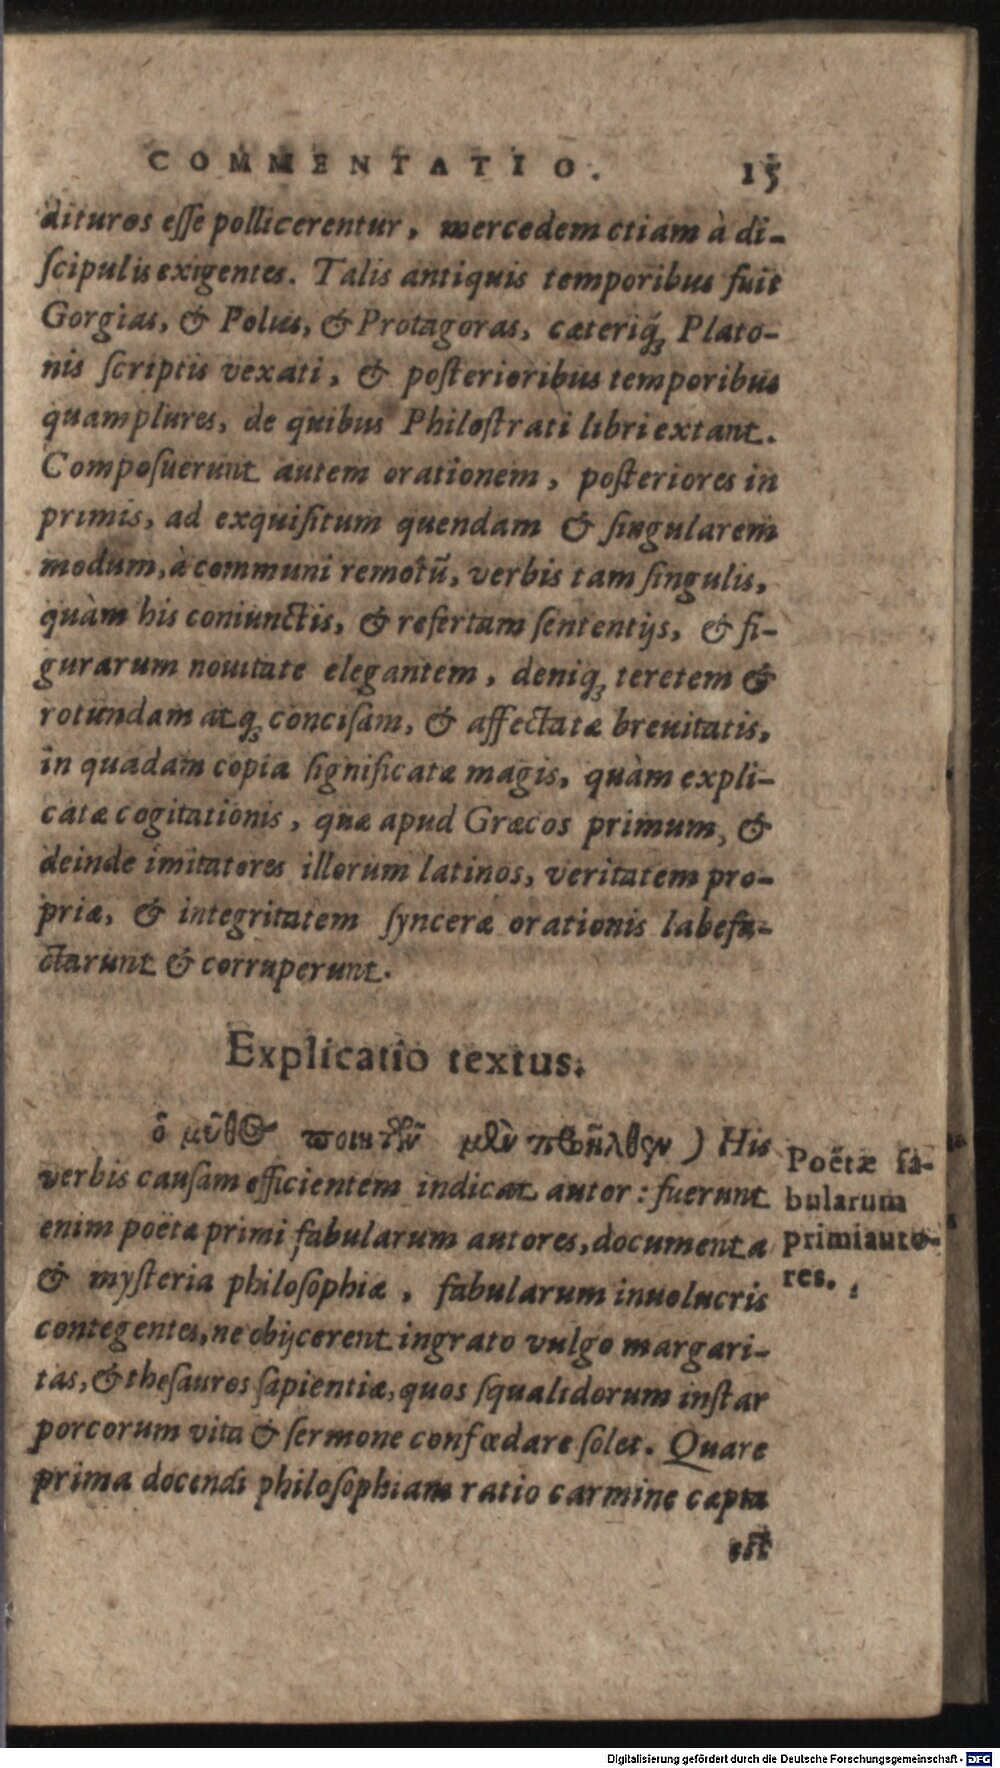 COMMENTATIO. 15
dituros esse pollicerentur, mercedem etiam à di-
scipulis exigentes. Talis antiquis temporibus fuit
Gorgias, & Polus, & Protagoras, cæteriq́ꝫ Plato-
nis scriptis vexati, & posterioribus temporibus
quamplures, de quibus Philostrati libri extant.
Composuerunt autem orationem, posteriores in
primis, ad exquisitum quendam & singularem
modum, à communi remotũ, verbis tam singulis,
quàm his coniunctis, & refertam sententijs, & fi-
gurarum nouitate elegantem, deniqꝫ teretem &
rotundam atqꝫ concisam, & affectatæ breuitatis,
in quadam copia significatæ magis, quàm expli-
catæ cogitationis, quæ apud Græcos primum, &
deinde imitatores illorum latinos, veritatem pro-
priæ, & integritatem synceræ orationis labefa-
ctarunt & corruperunt.
Explicatio textus.
ὁ μῦθος ποιητῶν μὲν προῆλθεν ) His
verbis causam efficientem indicat autor: fuerunt
enim poëtæ primi fabularum autores, documenta
& mysteria philosophiæ, fabularum inuolucris
contegentes, ne obijcerent ingrato vulgo margari-
tas, & thesauros sapientiæ, quos squalidorum instar
porcorum vita & sermone confœdare solet. Quare
prima docendi philosophiam ratio carmine capta
est
Poëtæ fa-
bularum
primi auto-
res.
Digitalisierung gefördert durch die Deutsche Forschungsgemeinschaft - DFG